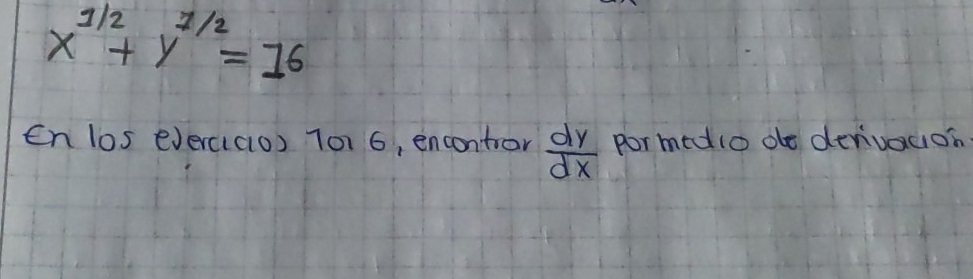 x^1/2 + y^1/2 = 16
En los ejercicios 1 al 6, encontrar dy/dx por medio de derivación